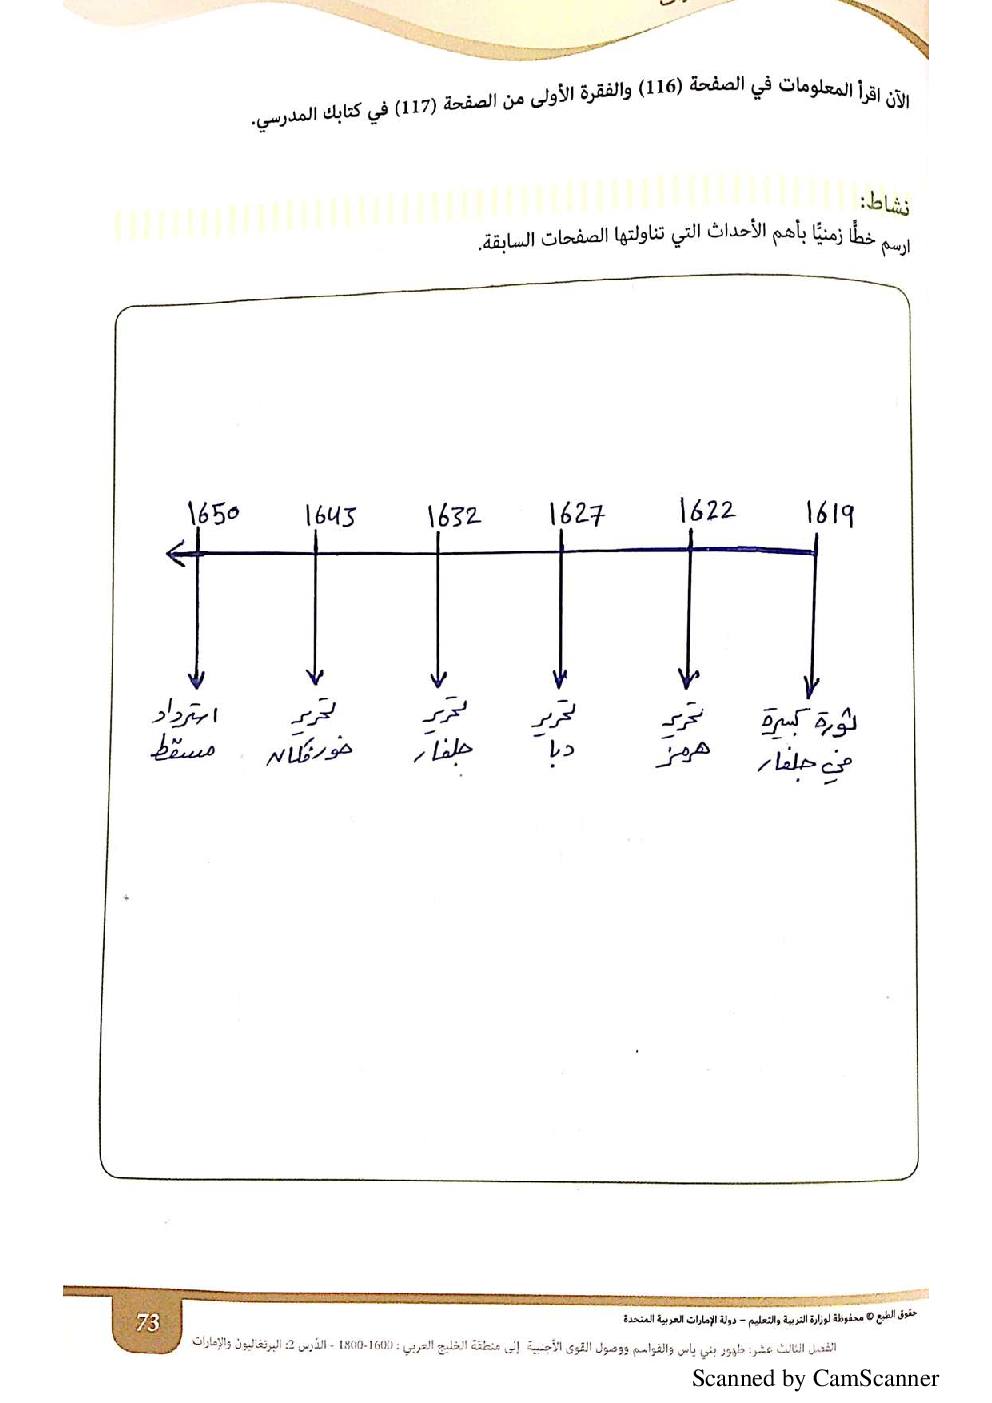 الآن اقرأ المعلومات في الصفحة (116) والفقرة الأولى من الصفحة (117) في كتابك المدرسي.
نشاط:
ارسم خطًّا زمنيًّا بأهم الأحداث التي تناولتها الصفحات السابقة.
1619 1622 1627 1632 1643 1650
ثورة كبيرة
في جلفار
تحرير
هرمز
تحرير
دبا
تحرير
جلفار
تحرير
خورفكان
استرداد
مسقط
حقوق الطبع © محفوظة لوزارة التربية والتعليم – دولة الإمارات العربية المتحدة
73
الفصل الثالث عشر: ظهور بني ياس والقواسم ووصول القوى الأجنبية إلى منطقة الخليج العربي: 1600-1800 - الدّرس 2: البرتغاليون والإمارات
Scanned by CamScanner